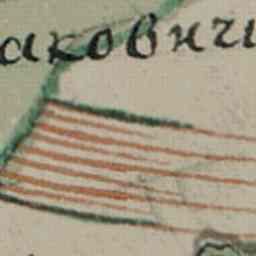 аковичи